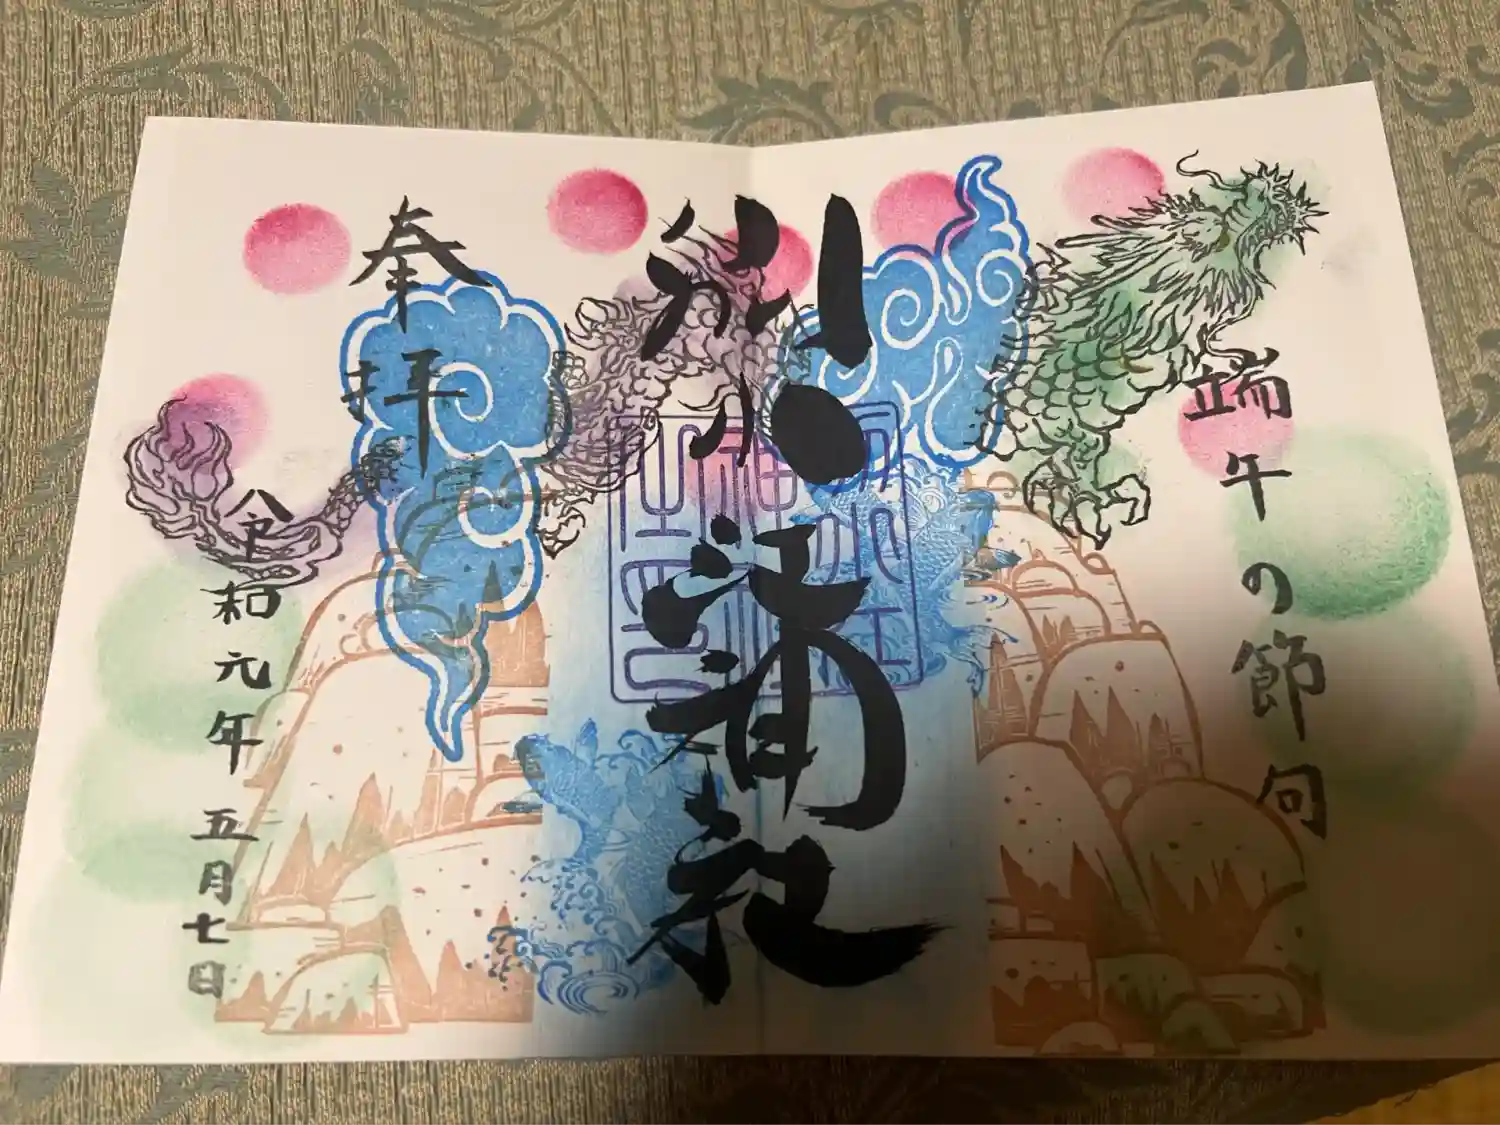 端午の節句
別小江神社
奉拝
令和元年五月七日